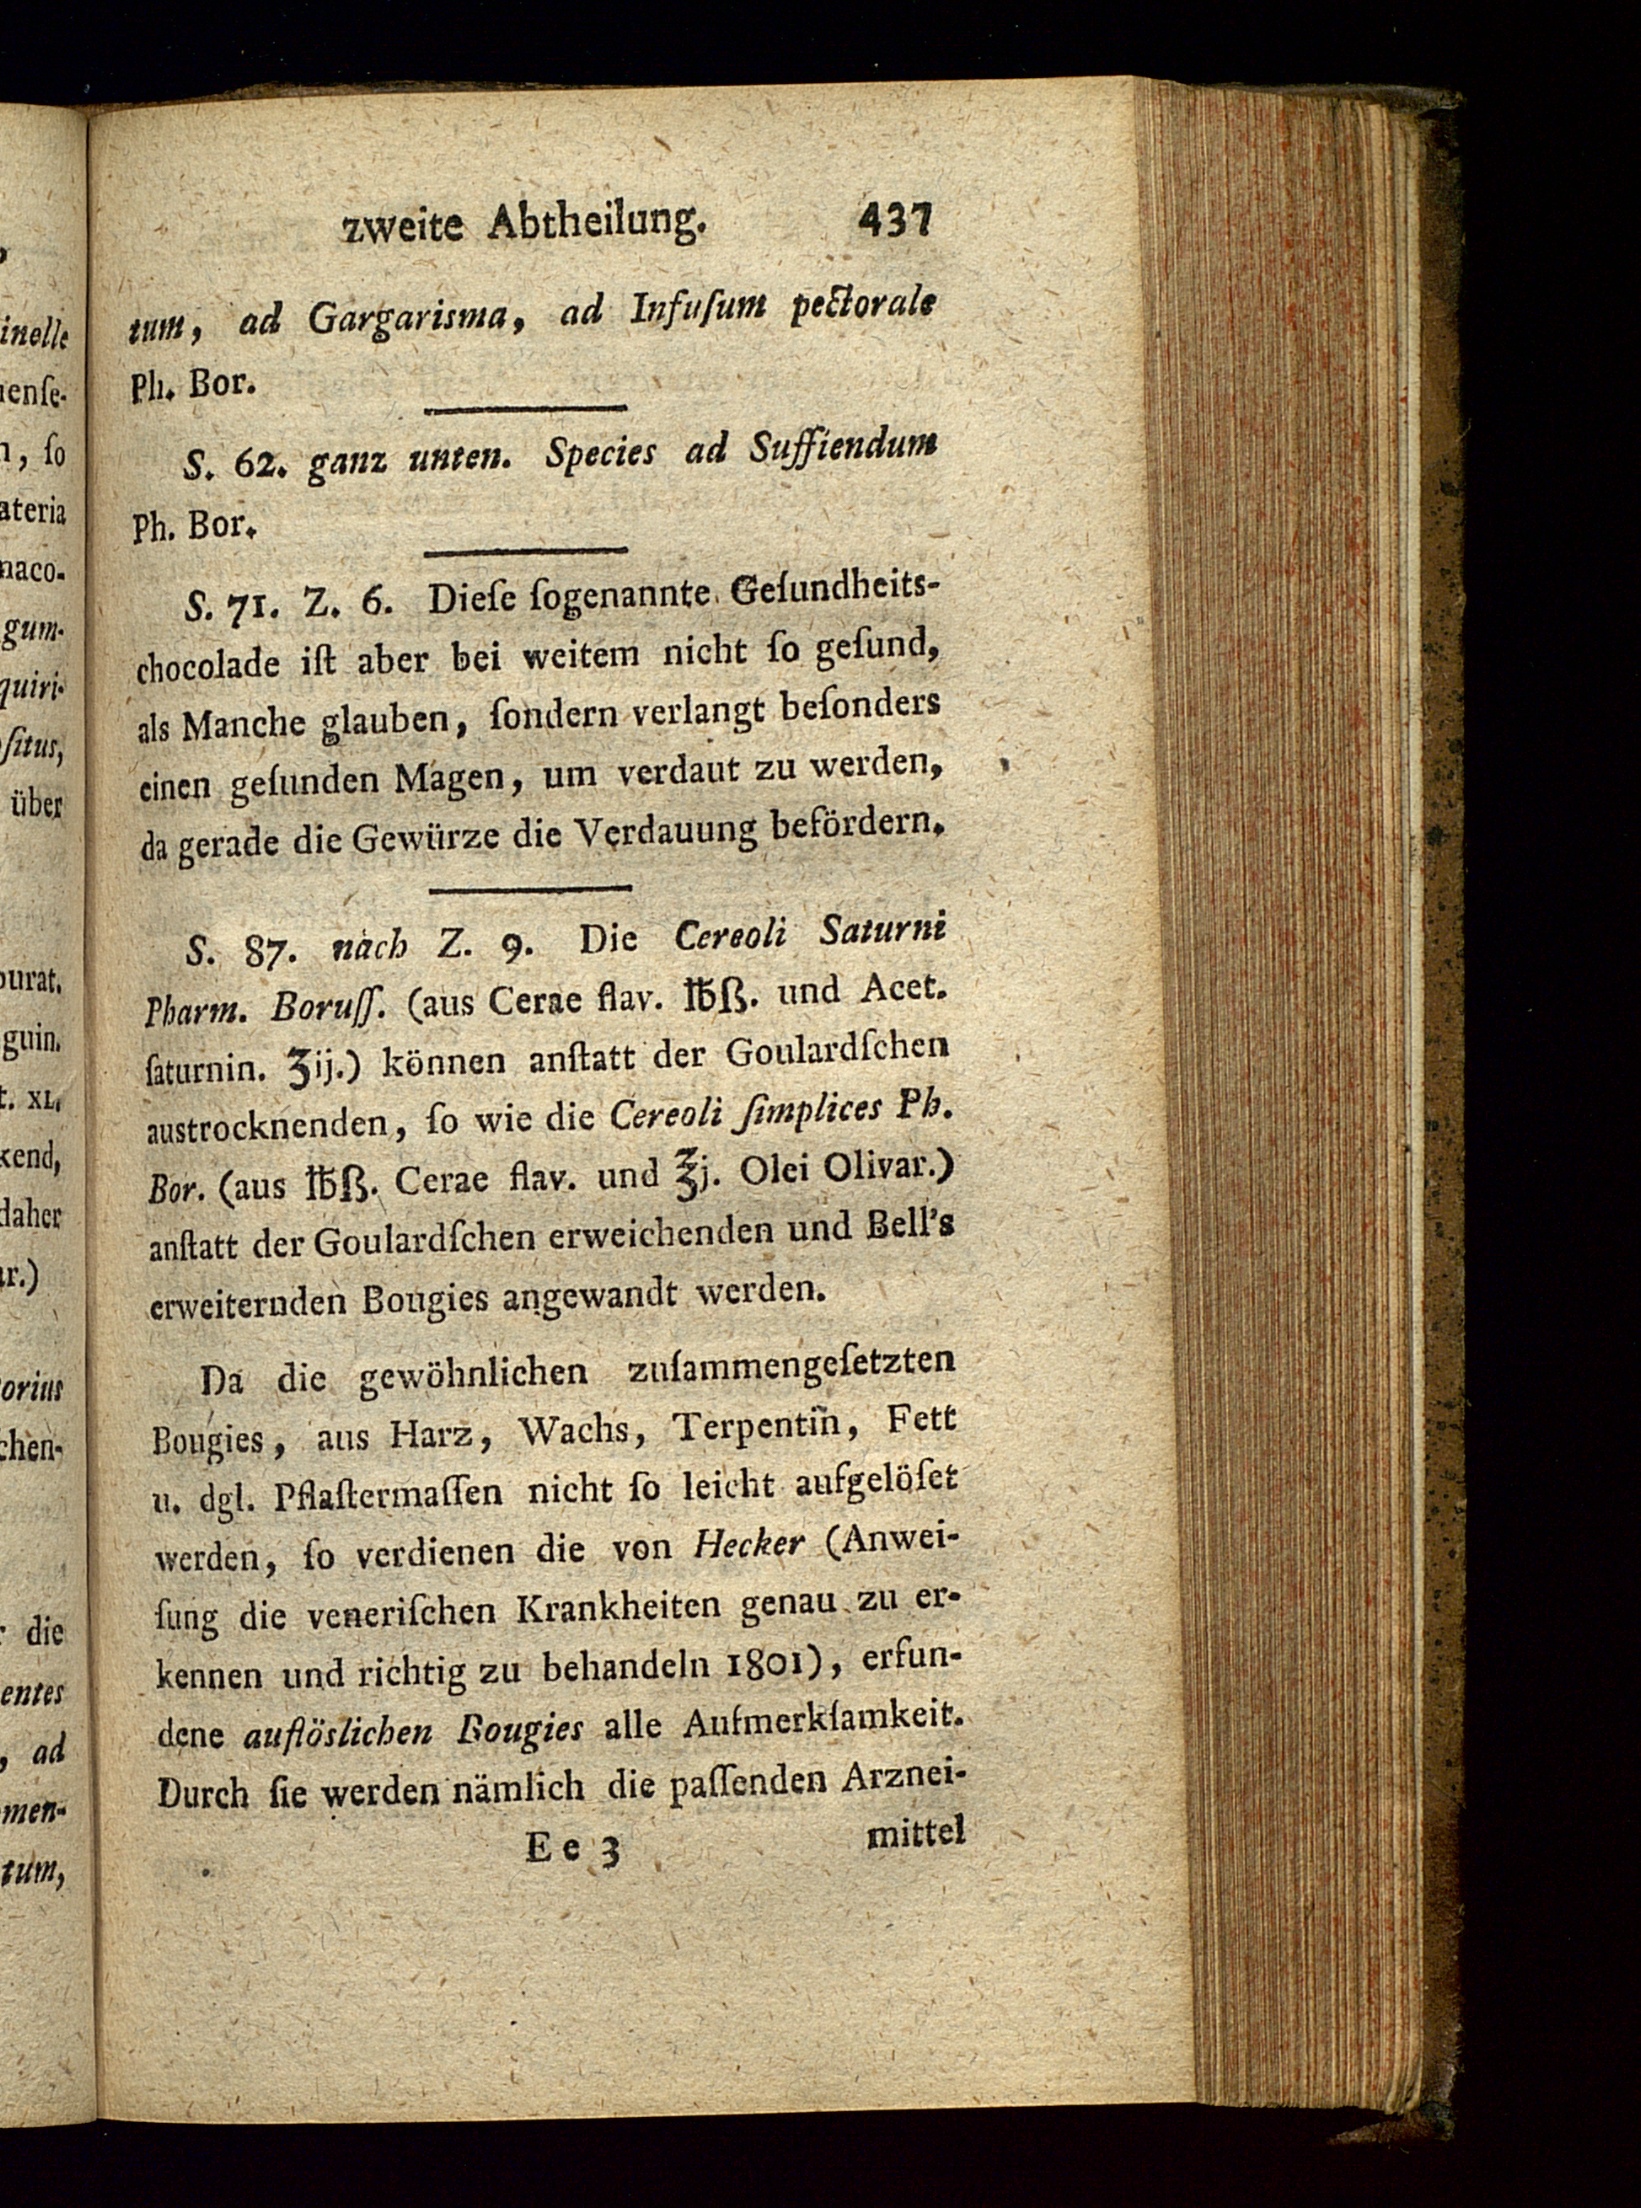 zweite Abtheilung. 437
tum, ad Gargarisma, ad Infuſum pectorale
Ph. Bor.
S. 62. ganz unten. Species ad Suffiendum
Ph. Bor.
S. 71. Z. 6. Dieſe ſogenannte Geſundheits-
chocolade iſt aber bei weitem nicht ſo geſund,
als Manche glauben, ſondern verlangt beſonders
einen geſunden Magen, um verdaut zu werden,
da gerade die Gewürze die Verdauung befördern.
S. 87. nach Z. 9. Die Cereoli Saturni
Pharm. Boruſſ. (aus Cerae flav. ℔ß. und Acet.
ſaturnin. ʒij.) können anſtatt der Goulardſchen
austrocknenden, ſo wie die Cereoli ſimplices Ph.
Bor. (aus ℔ß. Cerae flav. und ℥j. Olei Olivar.)
anſtatt der Goulardſchen erweichenden und Bell's
erweiternden Bougies angewandt werden.
Da die gewöhnlichen zuſammengeſetzten
Bougies, aus Harz, Wachs, Terpentin, Fett
u. dgl. Pflaſtermaſſen nicht ſo leicht aufgelöſet
werden, ſo verdienen die von Hecker (Anwei-
ſung die veneriſchen Krankheiten genau zu er-
kennen und richtig zu behandeln 1801), erfun-
dene auflöslichen Bougies alle Aufmerkſamkeit.
Durch ſie werden nämlich die paſſenden Arznei-
Ee 3 mittel
inelle
ienſe-
n, ſo
ateria
naco-
gum-
quiri-
ſitus,
über
purat.
guin.
t. XL,
kend,
daher
ar.)
orius
chen-
r die
entes
, ad
men-
tum,